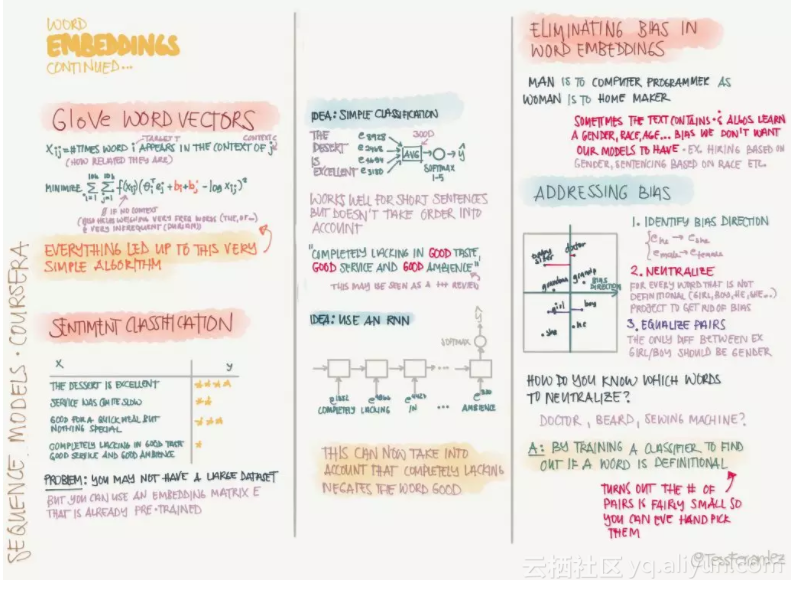 WORD
EMBEDDINGS
CONTINUED...
GloVe WORD VECTORS
TARGET
CONTEXT
Xij = # TIMES WORD i APPEARS IN THE CONTEXT OF j
(HOW RELATED THEY ARE)
MINIMIZE Σ Σ f(Xij)(θiT ej + bi + bj - log Xij)²
10k 10k
i=1 j=1
IF NO CONTEXT
EVERYTHING LED UP TO THIS VERY
SIMPLE ALGORITHM
SENTIMENT CLASSIFICATION
X y
THE DESSERT IS EXCELLENT
SERVICE WAS QUITE SLOW
GOOD FOR A QUICK MEAL BUT
NOTHING SPECIAL
COMPLETELY LACKING IN GOOD TASTE
GOOD SERVICE AND GOOD AMBIENCE
PROBLEM: YOU MAY NOT HAVE A LARGE DATASET
BUT YOU CAN USE AN EMBEDDING MATRIX E
THAT IS ALREADY PRE-TRAINED
SEQUENCE MODELS · COURSERA
IDEA: SIMPLE CLASSIFICATION
THE e8928
DESERT
IS
EXCELLENT e3180
300D
AVG
ŷ
SOFTMAX
1-5
WORKS WELL FOR SHORT SENTENCES
BUT DOESN'T TAKE ORDER INTO
ACCOUNT
"COMPLETELY LACKING IN GOOD TASTE,
GOOD SERVICE AND GOOD AMBIENCE"
THIS MAY BE SEEN AS A +++ REVIEW
IDEA: USE AN RNN
ŷ
SOFTMAX
...
COMPLETELY LACKING IN ... AMBIENCE
THIS CAN NOW TAKE INTO
ACCOUNT THAT COMPLETELY LACKING
NEGATES THE WORD GOOD
ELIMINATING BIAS IN
WORD EMBEDDINGS
MAN IS TO COMPUTER PROGRAMMER AS
WOMAN IS TO HOME MAKER
SOMETIMES THE TEXT CONTAINS & ALGOS LEARN
A GENDER, RACE, AGE... BIAS WE DON'T WANT
OUR MODELS TO HAVE · EX. HIRING BASED ON
GENDER, SENTENCING BASED ON RACE ETC.
ADDRESSING BIAS
doctor
BIAS
DIRECTION
girl boy
she he
1. IDENTIFY BIAS DIRECTION
ehe → eshe
emale → efemale
2. NEUTRALIZE
FOR EVERY WORD THAT IS NOT
DEFINITIONAL (GIRL, BOY, HE, SHE...)
PROJECT TO GET RID OF BIAS
3. EQUALIZE PAIRS
THE ONLY DIFF BETWEEN EX
GIRL/BOY SHOULD BE GENDER
HOW DO YOU KNOW WHICH WORDS
TO NEUTRALIZE?
DOCTOR, BEARD, SEWING MACHINE?
A: BY TRAINING A CLASSIFIER TO FIND
OUT IF A WORD IS DEFINITIONAL
TURNS OUT THE # OF
PAIRS IS FAIRLY SMALL SO
YOU CAN EVE HAND PICK
THEM
@TessFerrandez
云栖社区 yq.aliyun.com